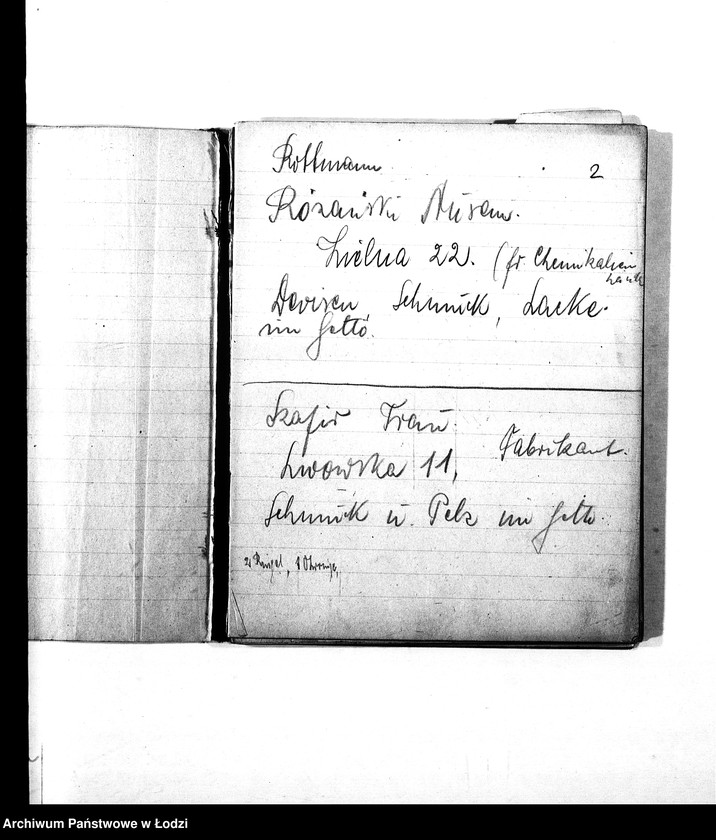 Rottmann
2
Różański Nusen.
Zielna 22. (fr. Chemikalien
Devisen Schmuck, Lacke.
im Getto.
Szafir Frau.
Fabrikant.
Lwowska 11,
Schmuck u. Pelz im Getto
2 Ringel, 1 Ohrringe,
Archiwum Państwowe w Łodzi